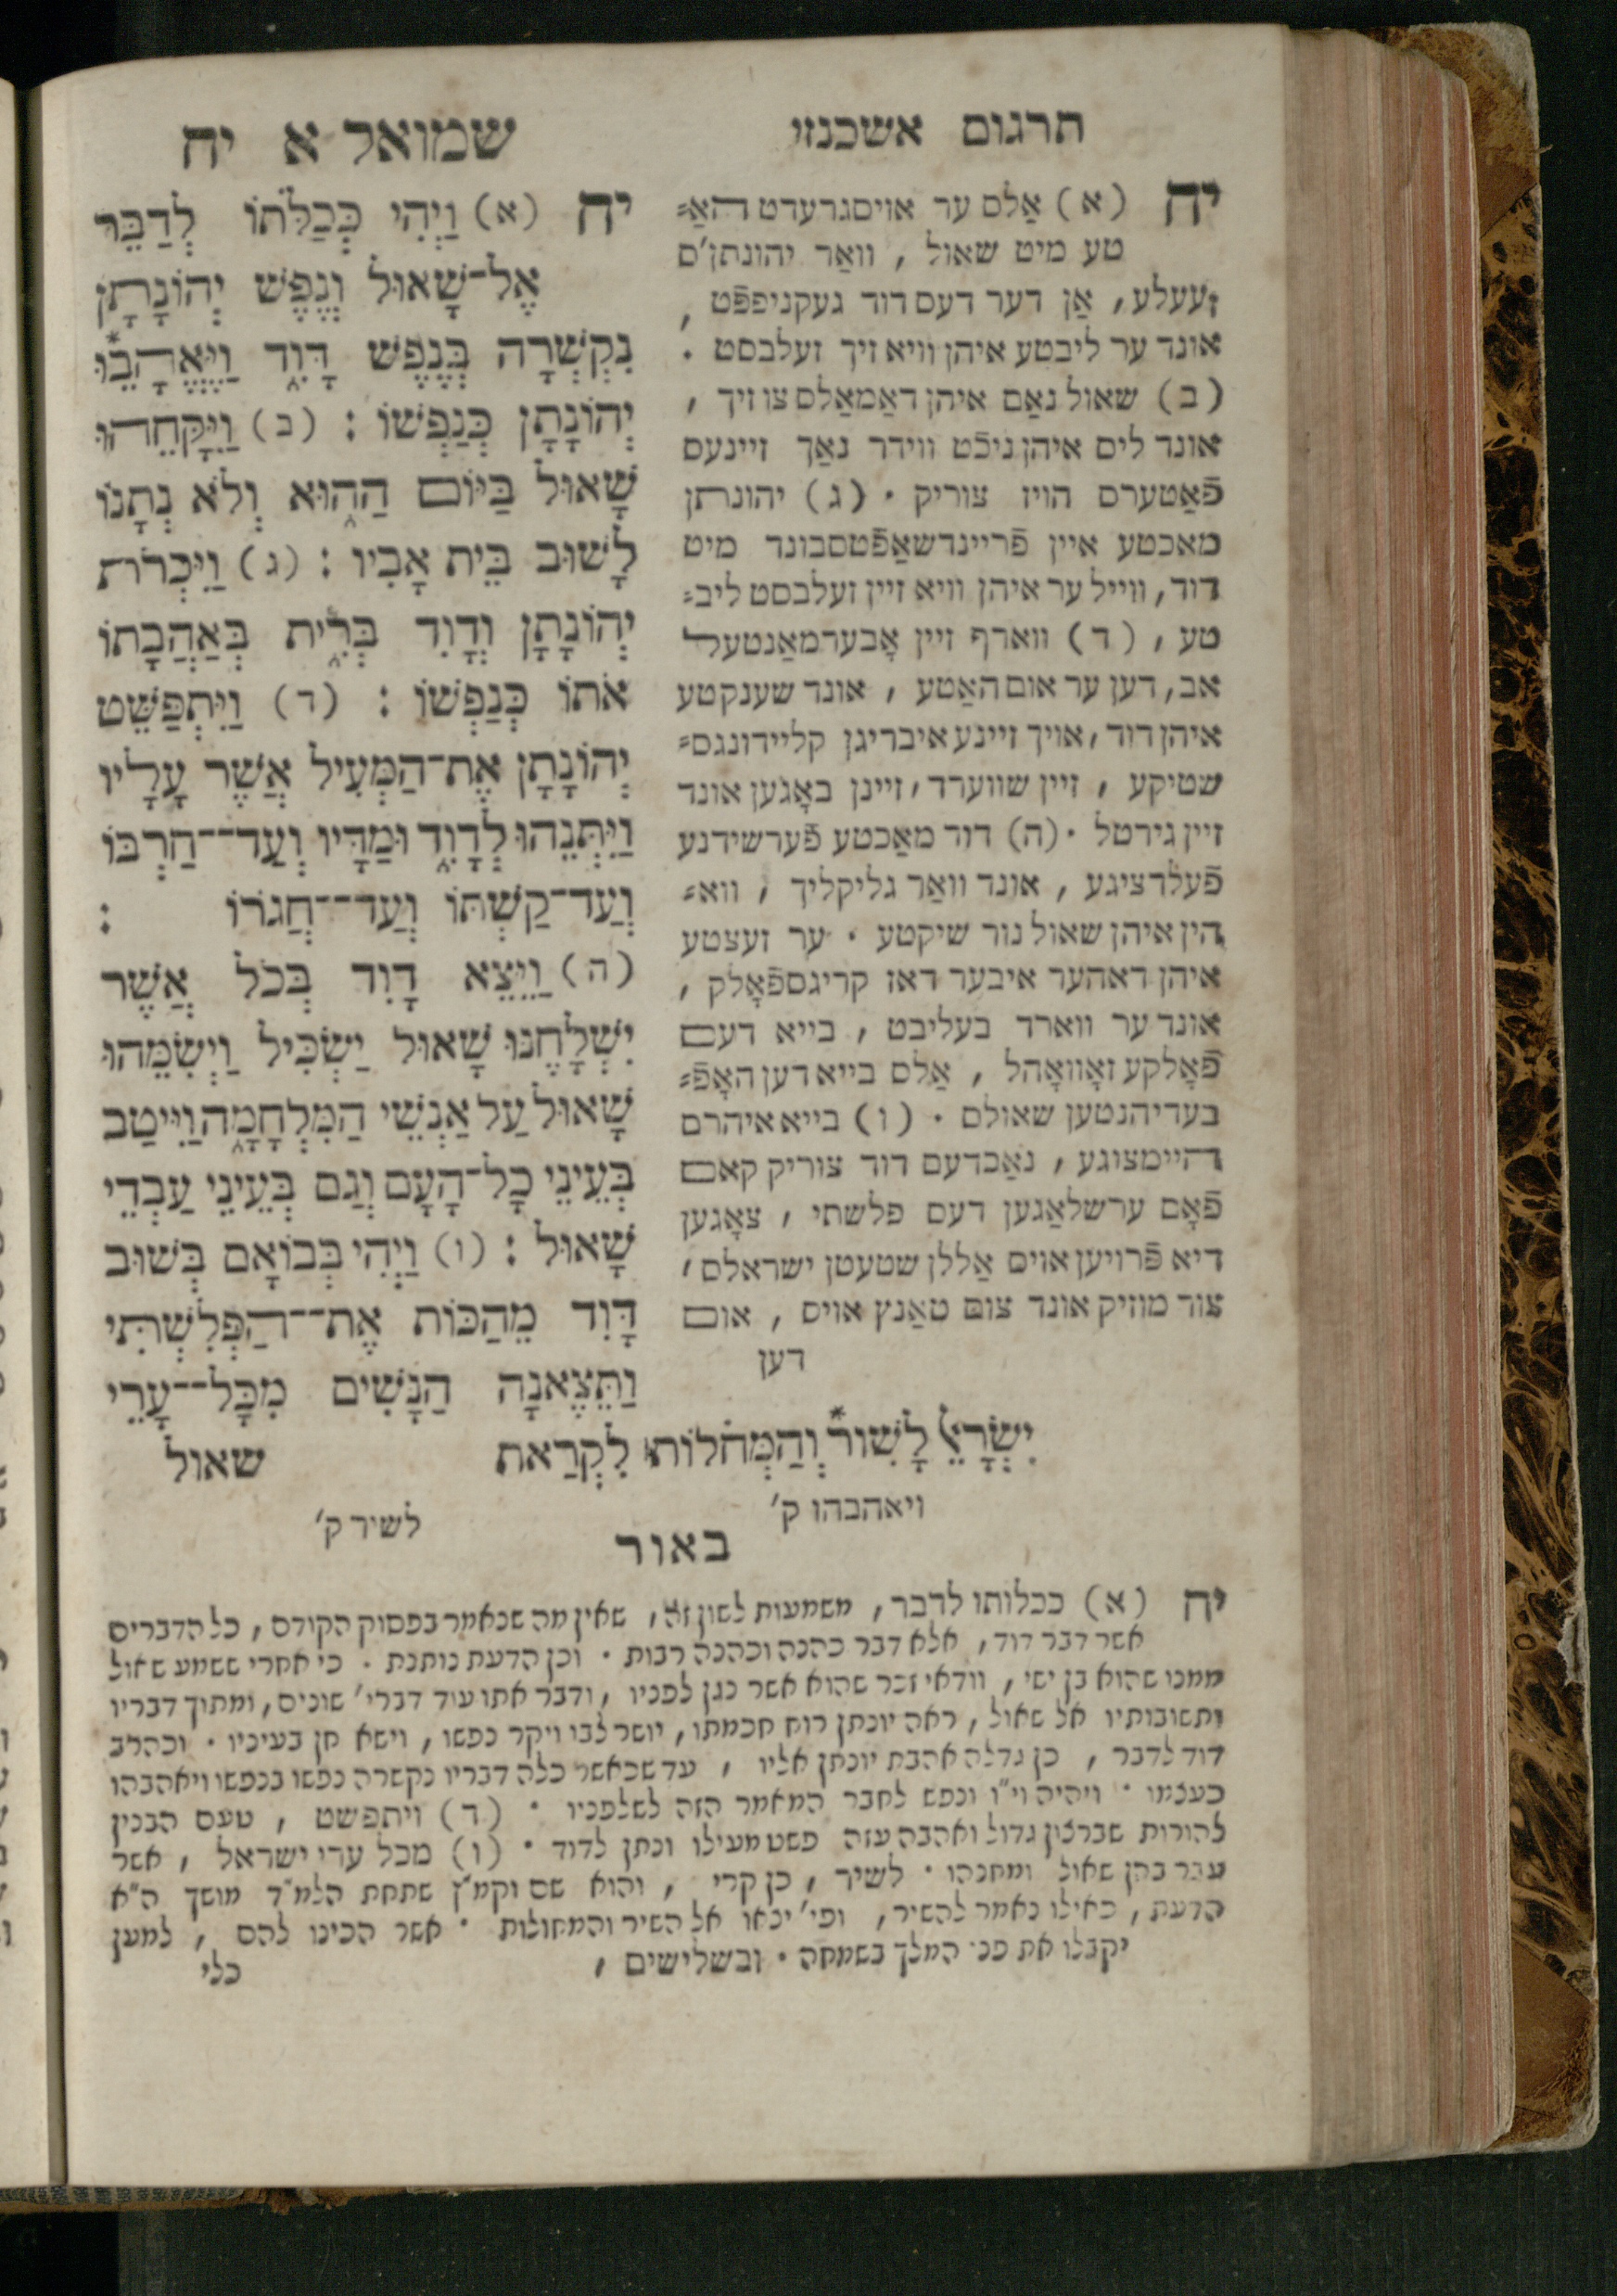 תרגום אשכנזי
יח (א) אַלס ער אויסגרעדט האַ=
טע מיט שאול, וואַר יהונתן'ס
זעעלע, אַן דער דעס דוד געקניפפֿט,
אונד ער ליבטע איהן וויא זיך זעלבסט.
(ב) שאול נאַם איהן דאַמאַלס צו זיך,
אונד ליס איהן ניכֿט ווידר נאַך זיינעס
פֿאַטערס הויז צוריק. (ג) יהונתן
מאכטע איין פֿריינדשאַפֿטסבונד מיט
דוד, ווייל ער איהן וויא זיין זעלבסט ליב=
טע, (ד) ווארף זיין אָבערמאַנטעל
אב, דען ער אום האַטע, אונד שענקטע
איהן דוד, אויך זיינע איבריגן קליידונגס=
שטיקע, זיין שווערד, זיינן באָגען אונד
זיין גירטל. (ה) דוד מאַכטע פֿערשידנע
פֿעלדציגע, אונד וואַר גליקליך, ווא=
הין איהן שאול נור שיקטע. ער זעצטע
איהן דאהער איבער דאז קריגספֿאָלק,
אונד ער ווארד בעליבט, בייא דעם
פֿאָלקע זאָוואָהל, אַלס בייא דען האָפֿ=
בעדיהנטען שאולס. (ו) בייא איהרם
היימצוגע, נאַכדעם דוד צוריק קאם
פֿאָם ערשלאַגען דעס פלשתי, צאָגען
דיא פֿרויען אויס אַללן שטעטן ישראלס,
צור מוזיק אונד צום טאַנץ אויס, אום
דען
שמואל א יח
יח (א) וַיְהִי כְּכַלֹּתוֹ לְדַבֵּר
אֶל־שָׁאוּל וְנֶפֶשׁ יְהוֹנָתָן
נִקְשְׁרָה בְּנֶפֶשׁ דָּוִד וַיֶּאֱהָבֵוּ*
יְהוֹנָתָן כְּנַפְשׁוֹ: (ב) וַיִּקָּחֵהוּ
שָׁאוּל בַּיּוֹם הַהוּא וְלֹא נְתָנוֹ
לָשׁוּב בֵּית אָבִיו: (ג) וַיִּכְרֹת
יְהוֹנָתָן וְדָוִד בְּרִית בְּאַהֲבָתוֹ
אֹתוֹ כְּנַפְשׁוֹ: (ד) וַיִּתְפַּשֵּׁט
יְהוֹנָתָן אֶת־הַמְּעִיל אֲשֶׁר עָלָיו
וַיִּתְּנֵהוּ לְדָוִד וּמַדָּיו וְעַד־־חַרְבּוֹ
וְעַד־קַשְׁתּוֹ וְעַד־־חֲגֹרוֹ:
(ה) וַיֵּצֵא דָוִד בְּכֹל אֲשֶׁר
יִשְׁלָחֶנּוּ שָׁאוּל יַשְׂכִּיל וַיְשִׂמֵהוּ
שָׁאוּל עַל אַנְשֵׁי הַמִּלְחָמָה וַיִּיטַב
בְּעֵינֵי כָל־הָעָם וְגַם בְּעֵינֵי עַבְדֵי
שָׁאוּל: (ו) וַיְהִי בְּבוֹאָם בְּשׁוּב
דָּוִד מֵהַכּוֹת אֶת־־הַפְּלִשְׁתִּי
וַתֵּצֶאנָה הַנָּשִׁים מִכָּל־־עָרֵי
יִשְׂרָאֵל לָשִׁור* וְהַמְּחֹלוֹת לִקְרַאת שאול
ויאהבהו ק' לשיר ק'
באור
יח (א) ככלותו לדבר, משמעות לשון זה, שאין מה שנאמר בפסוק הקודם, כל הדברים
אשר דבר דוד, אלא דבר כהנה וכהנה רבות. וכן הדעת נותנת. כי אחרי ששמע שאול
ממנו שהוא בן ישי, וודאי זכר שהוא אשר נגן לפניו, ודבר אתו עוד דברי' שונים, ומתוך דבריו
ותשובותיו אל שאול, ראה יונתן רוח חכמתו, יושר לבו ויקר נפשו, וישא חן בעיניו. וכהרב
דוד לדבר, כן גדלה אהבת יונתן אליו, עד שכאשר כלה דבריו נקשרה נפשו בנפשו ויאהבהו
כעצמו. ויהיה וי"ו ונפש לחבר המאמר הזה לשלפניו. (ד) ויתפשט, טעם הבנין
להורות שברצון גדול ואהבה עזה פשט מעילו ונתן לדוד. (ו) מכל ערי ישראל, אשר
עבר בהן שאול ומחנהו. לשיר, כן קרי, והוא שם וקמ"ץ שתחת הלמ"ד מושך ה"א
הדעת, כאילו נאמר להשיר, ופי' יצאו אל השיר והמחולות. אשר הכינו להם, למען
יקבלו את פני המלך בשמחה. ובשלישים,
כלי